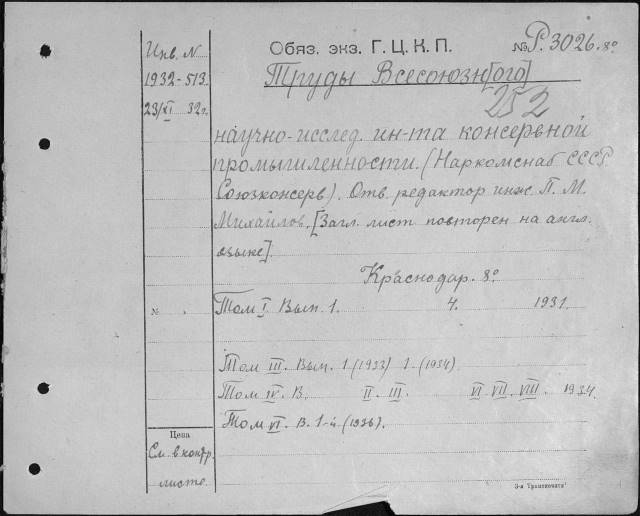 Инв. N
1932-513
23/XI 32 г.
Обяз. экз. Г. Ц. К. П.
№ Р. 3026. 8°
Труды Всесоюзн[ого]
252
научно-исслед. ин-та консервной
промышленности. (Наркомснаб СССР.
Союзконсерв). Отв. редактор инж. П. М.
Михайлов. [Загл. лист повторен на англ.
языке].
Краснодар. 8°
№
Том I Вып. 1. 4. 1931.
Том III. Вып. 1 (1933) 1 (1934)
Том IV. В. II. III. VI. VII. VIII. 1934.
Том VI. В. 1-й (1936).
Цена
См. в контр.
листе.
3-я Транспечати